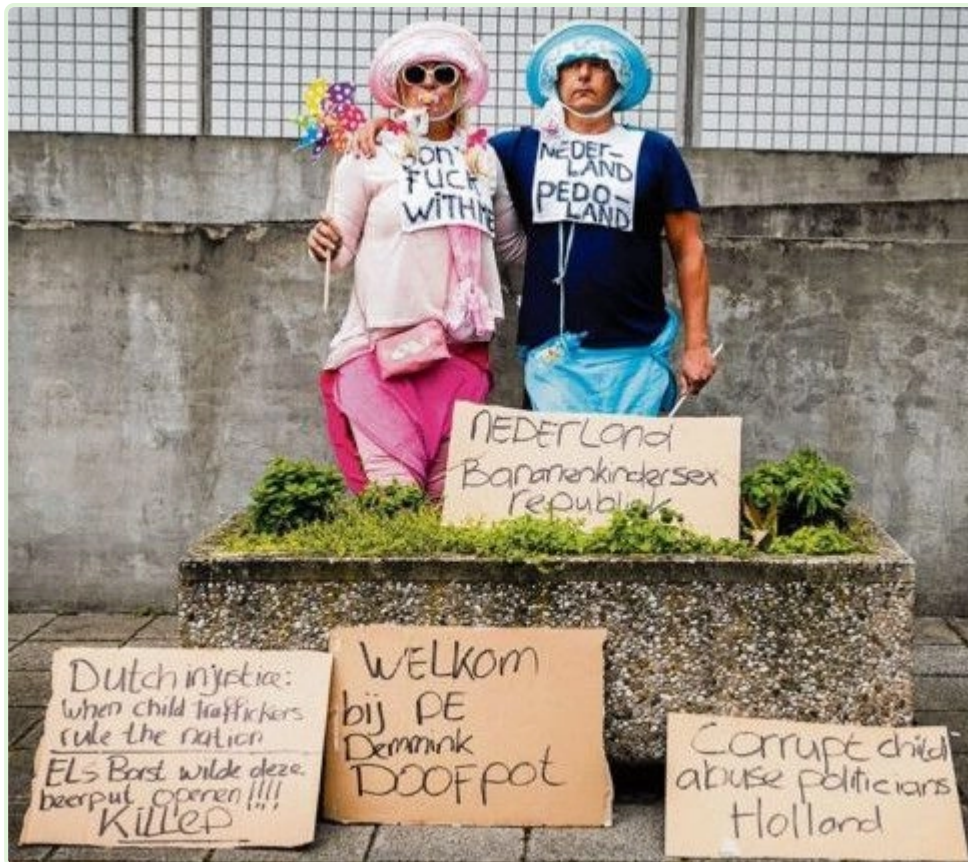 DON'T
FUCK
WITH ME
NEDER-
LAND
PEDO-
LAND
NEDERLand
Bananenkindersex
republiek
Dutch injustice:
when child traffickers
rule the nation
ELS Borst wilde deze
beerput openen!!!!
KILLED
WELKOM
bij DE
Demmink
DOOFPOT
Corrupt child
abuse politicians
Holland